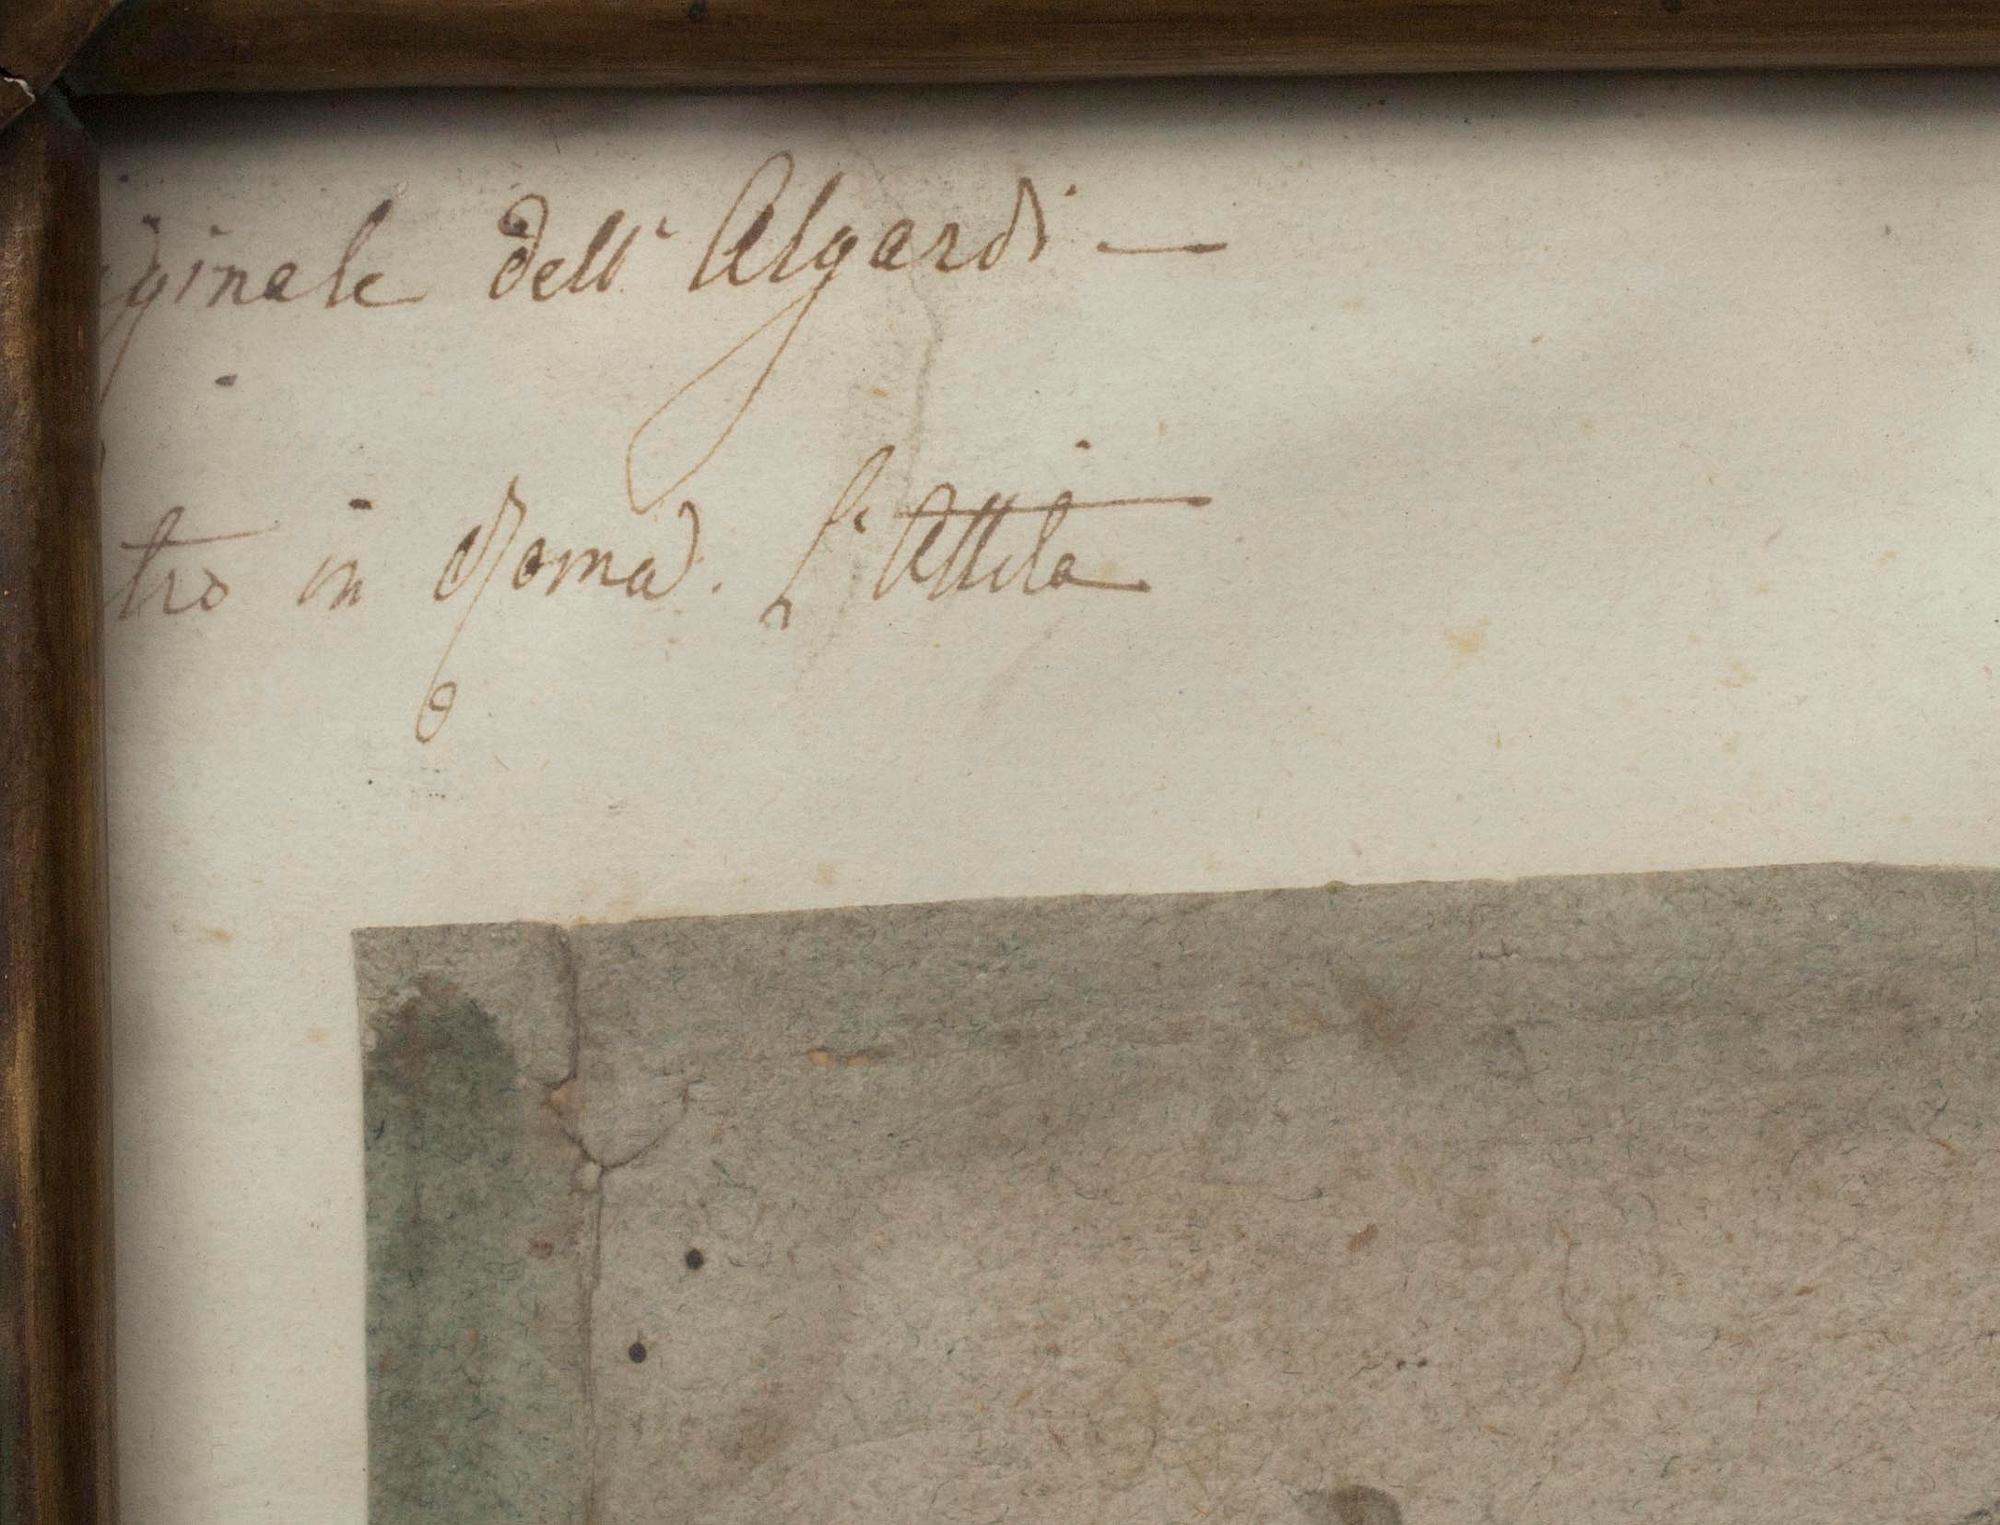 iginale dell' Algardi —
tro in Roma. L'Attila